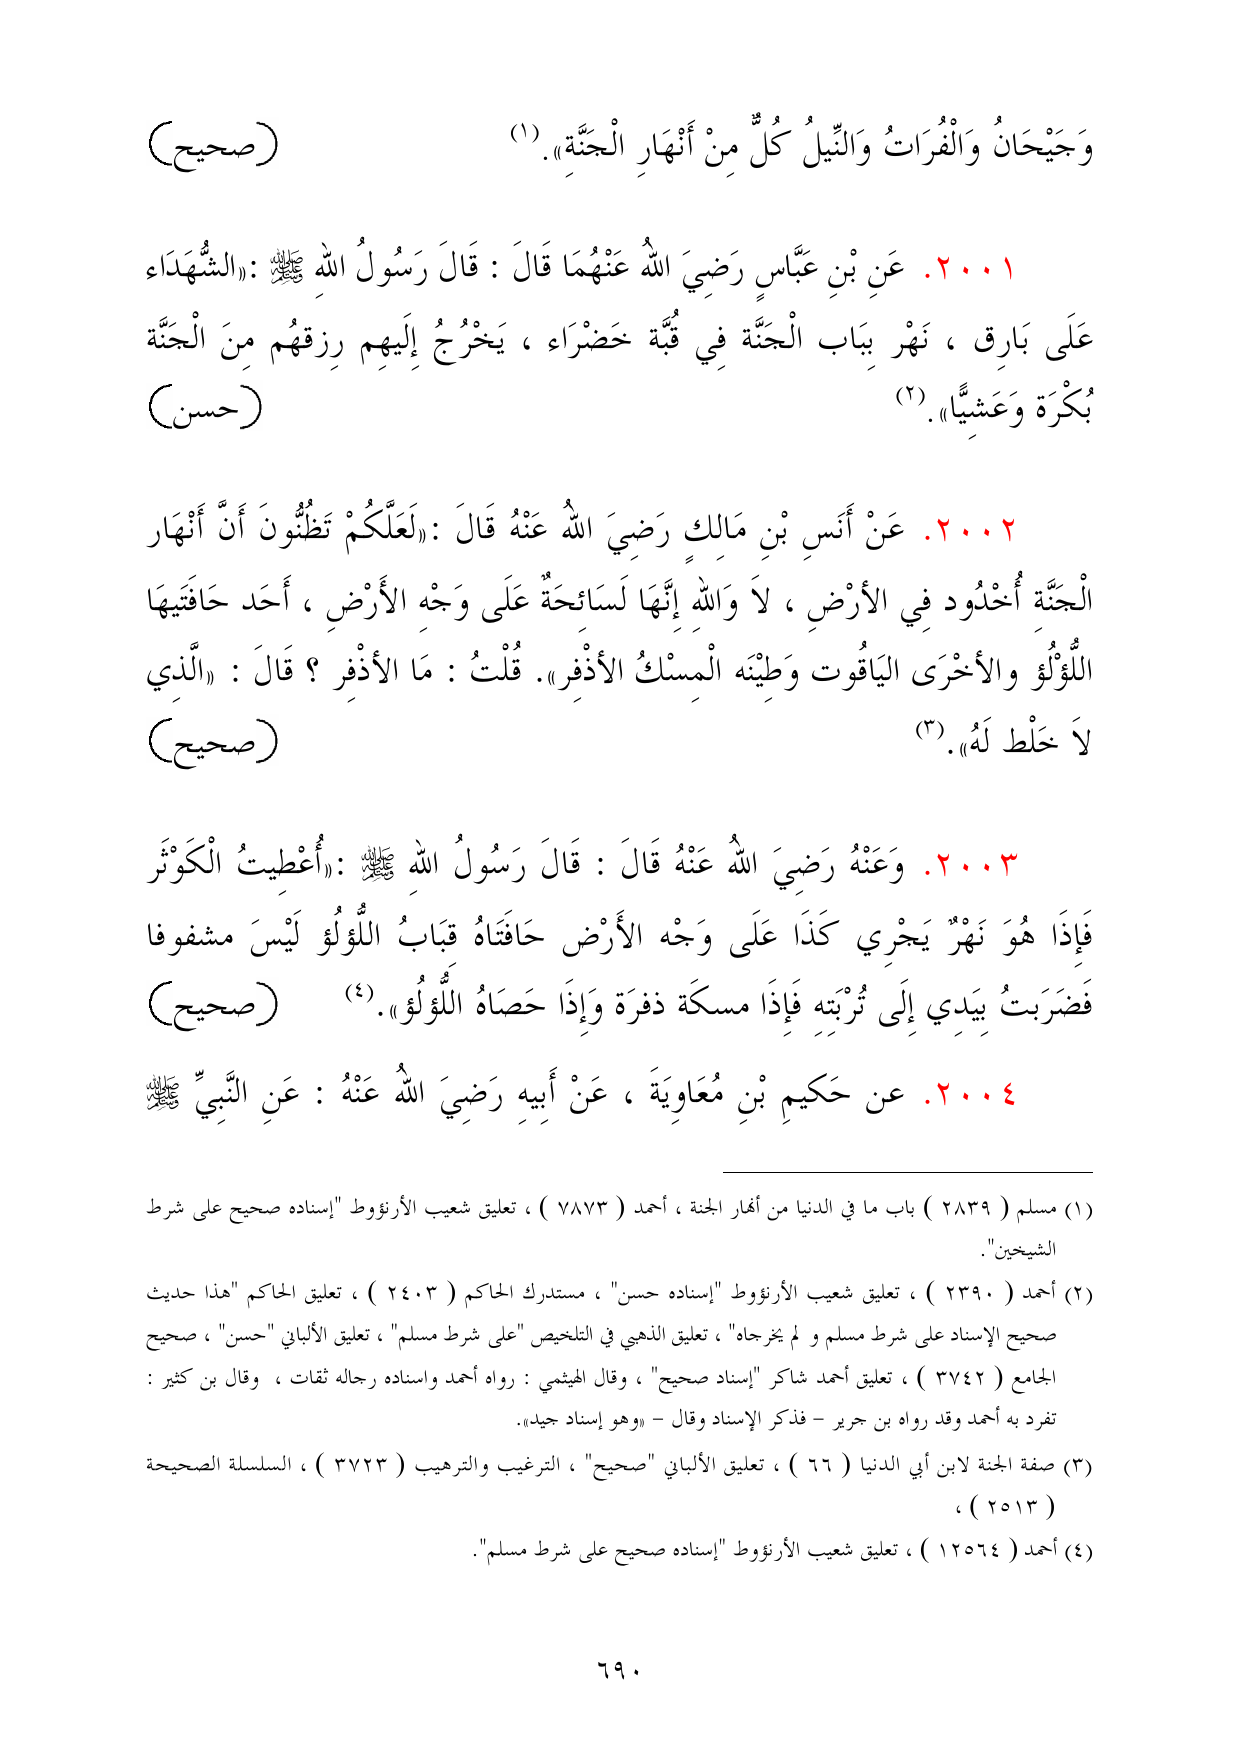 وَجَيْحَانُ وَالْفُرَاتُ وَالنِّيلُ كُلٌّ مِنْ أَنْهَارِ الْجَنَّةِ». (١) (صحيح)
٢٠٠١. عَنِ بْنِ عَبَّاسٍ رَضِيَ اللهُ عَنْهُمَا قَالَ : قَالَ رَسُولُ اللهِ ﷺ :«الشُّهَدَاء
عَلَى بَارِق ، نَهْر بِبَاب الْجَنَّة فِي قُبَّة خَضْرَاء ، يَخْرُجُ إِلَيهِم رِزقهُم مِنَ الْجَنَّة
بُكْرَة وَعَشِيًّا». (٢) (حسن)
٢٠٠٢. عَنْ أَنَسِ بْنِ مَالِكٍ رَضِيَ اللهُ عَنْهُ قَالَ :«لَعَلَّكُمْ تَظُنُّونَ أَنَّ أَنْهَار
الْجَنَّةِ أُخْدُود فِي الأرْضِ ، لاَ وَاللهِ إِنَّهَا لَسَائِحَةٌ عَلَى وَجْهِ الأَرْضِ ، أَحَد حَافَتَيهَا
اللُّؤْلُؤ والأخْرَى اليَاقُوت وَطِيْنَه الْمِسْكُ الأذْفِر». قُلْتُ : مَا الأذْفِر ؟ قَالَ : «الَّذِي
لاَ خَلْط لَهُ». (٣) (صحيح)
٢٠٠٣. وَعَنْهُ رَضِيَ اللهُ عَنْهُ قَالَ : قَالَ رَسُولُ اللهِ ﷺ :«أُعْطِيتُ الْكَوْثَر
فَإِذَا هُوَ نَهْرٌ يَجْرِي كَذَا عَلَى وَجْه الأَرْض حَافَتَاهُ قِبَابُ اللُّؤلُؤ لَيْسَ مشفوفا
فَضَرَبتُ بِيَدِي إِلَى تُرْبَتِهِ فَإِذَا مسكَة ذفرَة وَإِذَا حَصَاهُ اللُّؤلُؤ». (٤) (صحيح)
٢٠٠٤. عن حَكيمِ بْنِ مُعَاوِيَةَ ، عَنْ أَبيهِ رَضِيَ اللهُ عَنْهُ : عَنِ النَّبيِّ ﷺ
(١) مسلم ( ٢٨٣٩ ) باب ما في الدنيا من أنهار الجنة ، أحمد ( ٧٨٧٣ ) ، تعليق شعيب الأرنؤوط "إسناده صحيح على شرط
الشيخين".
(٢) أحمد ( ٢٣٩٠ ) ، تعليق شعيب الأرنؤوط "إسناده حسن" ، مستدرك الحاكم ( ٢٤٠٣ ) ، تعليق الحاكم "هذا حديث
صحيح الإسناد على شرط مسلم و لم يخرجاه" ، تعليق الذهبي في التلخيص "على شرط مسلم" ، تعليق الألباني "حسن" ، صحيح
الجامع ( ٣٧٤٢ ) ، تعليق أحمد شاكر "إسناد صحيح" ، وقال الهيثمي : رواه أحمد واسناده رجاله ثقات ، وقال بن كثير :
تفرد به أحمد وقد رواه بن جرير – فذكر الإسناد وقال – «وهو إسناد جيد».
(٣) صفة الجنة لابن أبي الدنيا ( ٦٦ ) ، تعليق الألباني "صحيح" ، الترغيب والترهيب ( ٣٧٢٣ ) ، السلسلة الصحيحة
( ٢٥١٣ ) ،
(٤) أحمد ( ١٢٥٦٤ ) ، تعليق شعيب الأرنؤوط "إسناده صحيح على شرط مسلم".
٦٩٠